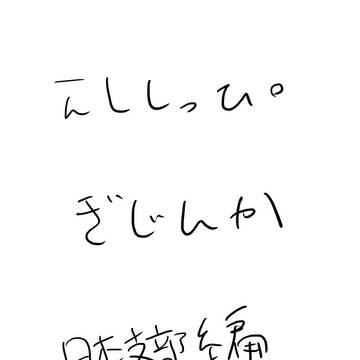 えししっぴ
ぎじんか
日本支部編